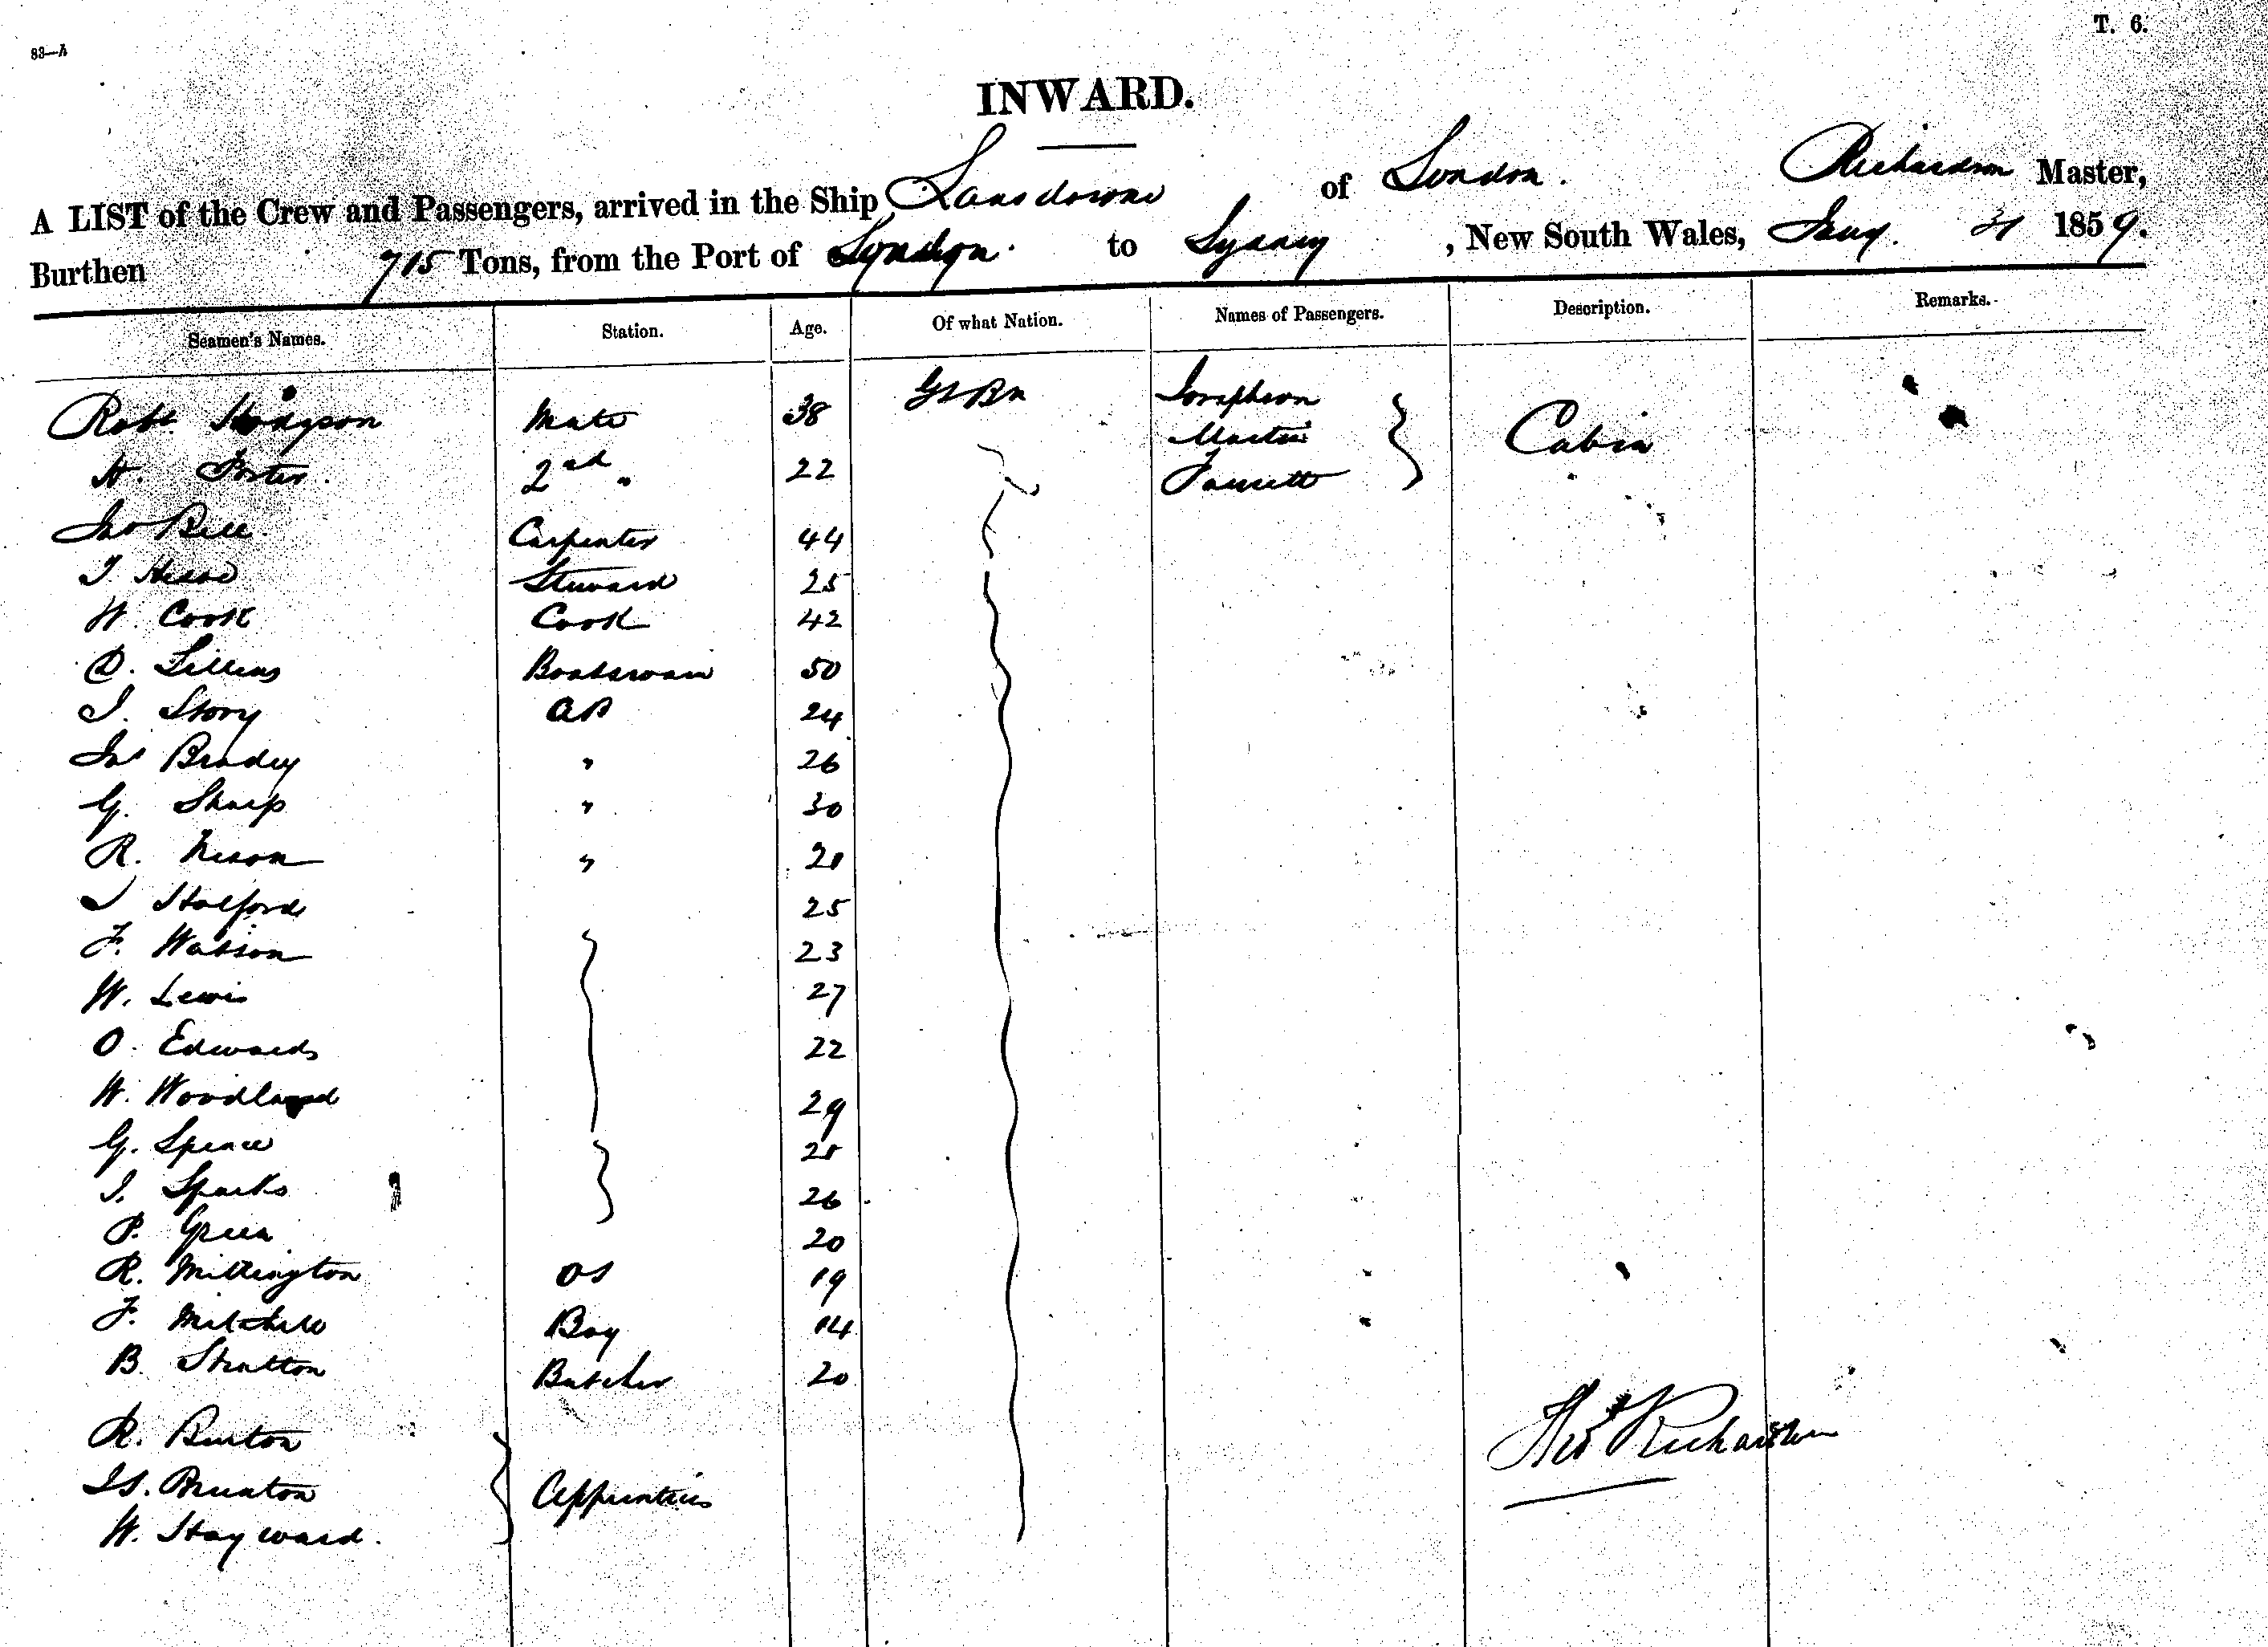 83—A
T. 6.
INWARD.
A LIST of the Crew and Passengers, arrived in the Ship Lansdowne of London. Richardson Master,
Burthen 715 Tons, from the Port of London. to Sydney, New South Wales, Jany. 31 1859.
Seamen's Names. Station. Age. Of what Nation. Names of Passengers. Description. Remarks.
Robt. Hodgson Mate 38 Gt Bn Josephson
Martin Cabin
H. Porter. 2nd " 22 Fawcett
Jno Bell. Carpenter 44
T Steward 25
W. Cook Cook 42
D. Boatswain 50
J. Story AB 24
Jas Bradey " 26
G. Sharp " 30
R. Nixon "
J Halford 25
F. Watson 23
W. Lewis 27
O. Edwards 22
W. Woodland 29
G. Spence
J. Sparks 26
P. Green 20
R. Millington OS 19
F. Mitchell Boy 14
B. Stratton Butcher 20
R. Burton
Brunton Apprentices
W. Hayward.
Richardson